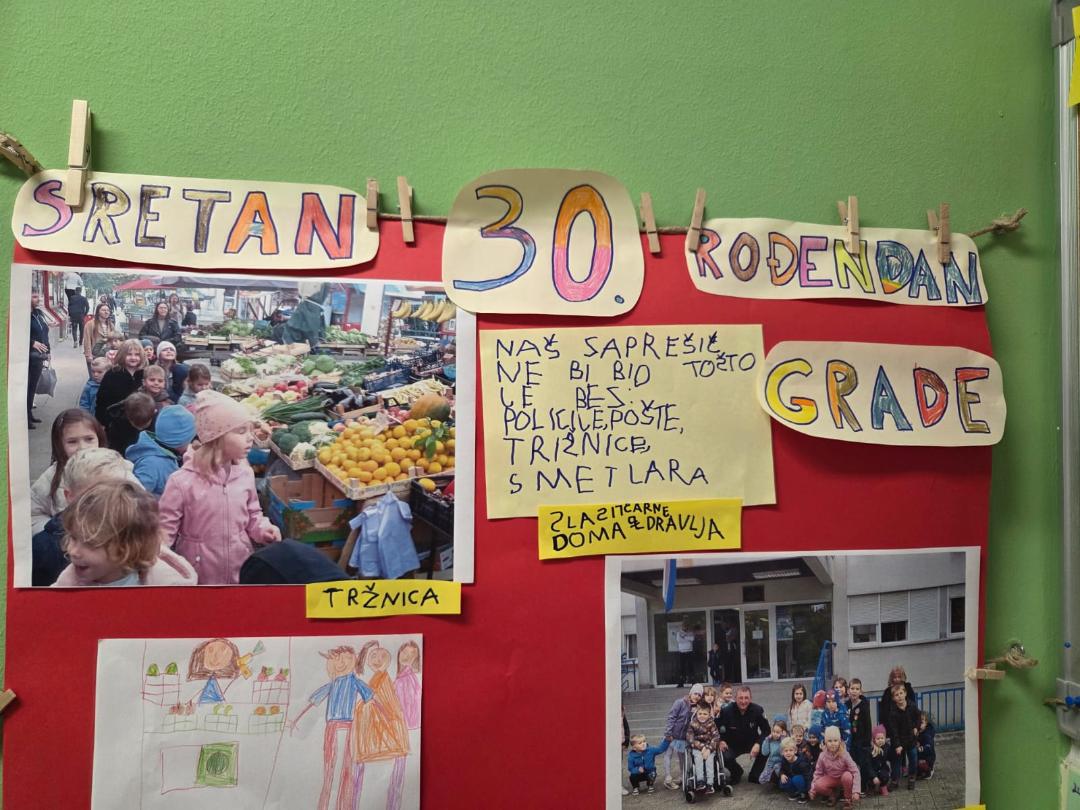 SRETAN 30. ROĐENDAN
GRADE
NAŠ SAPREŠIĆ
NE BI BIO TOŠTO
JE BES:
POLICIJE, POŠTE,
TRIŽNICE,
SMETLARA
DOMA ZDRAVLJA
TRŽNICA